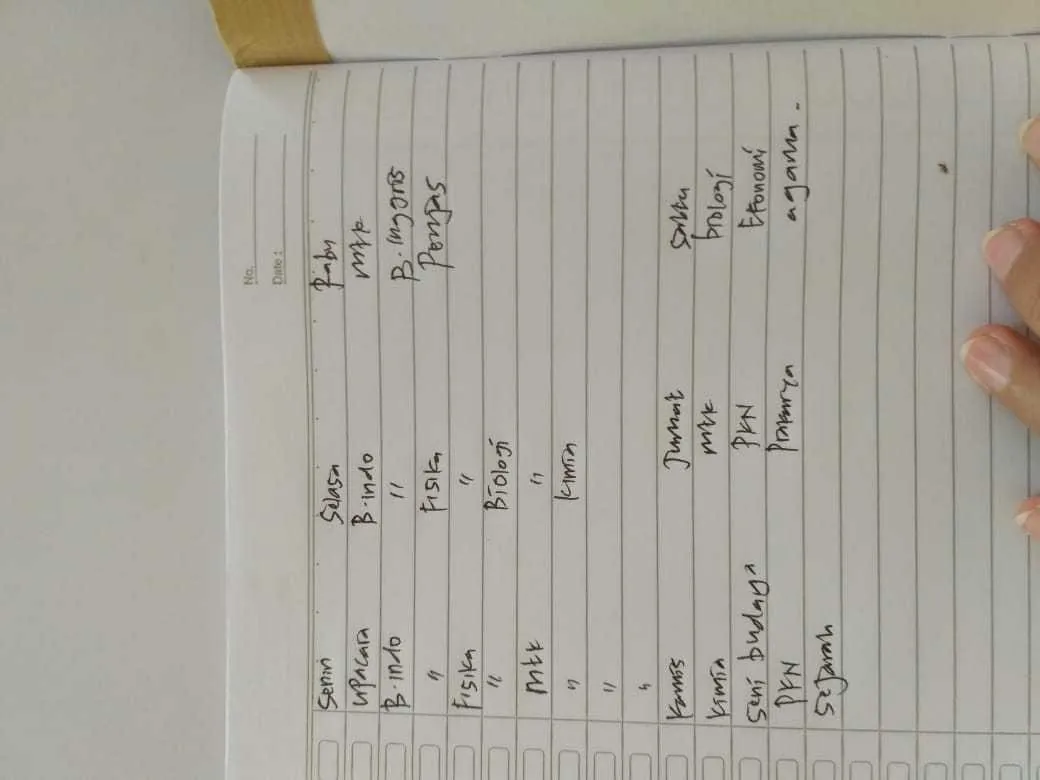 No.
Date :
Senin Selasa Rabu
upacara B.indo mtk
B.indo " B.inggris
" Fisika Penjas
Fisika "
" Biologi
mtk "
" kimia
"
"
Kamis Jumat Sabtu
kimia mtk biologi
Seni budaya PKN Ekonomi
PKN Prakarya agama.
Sejarah